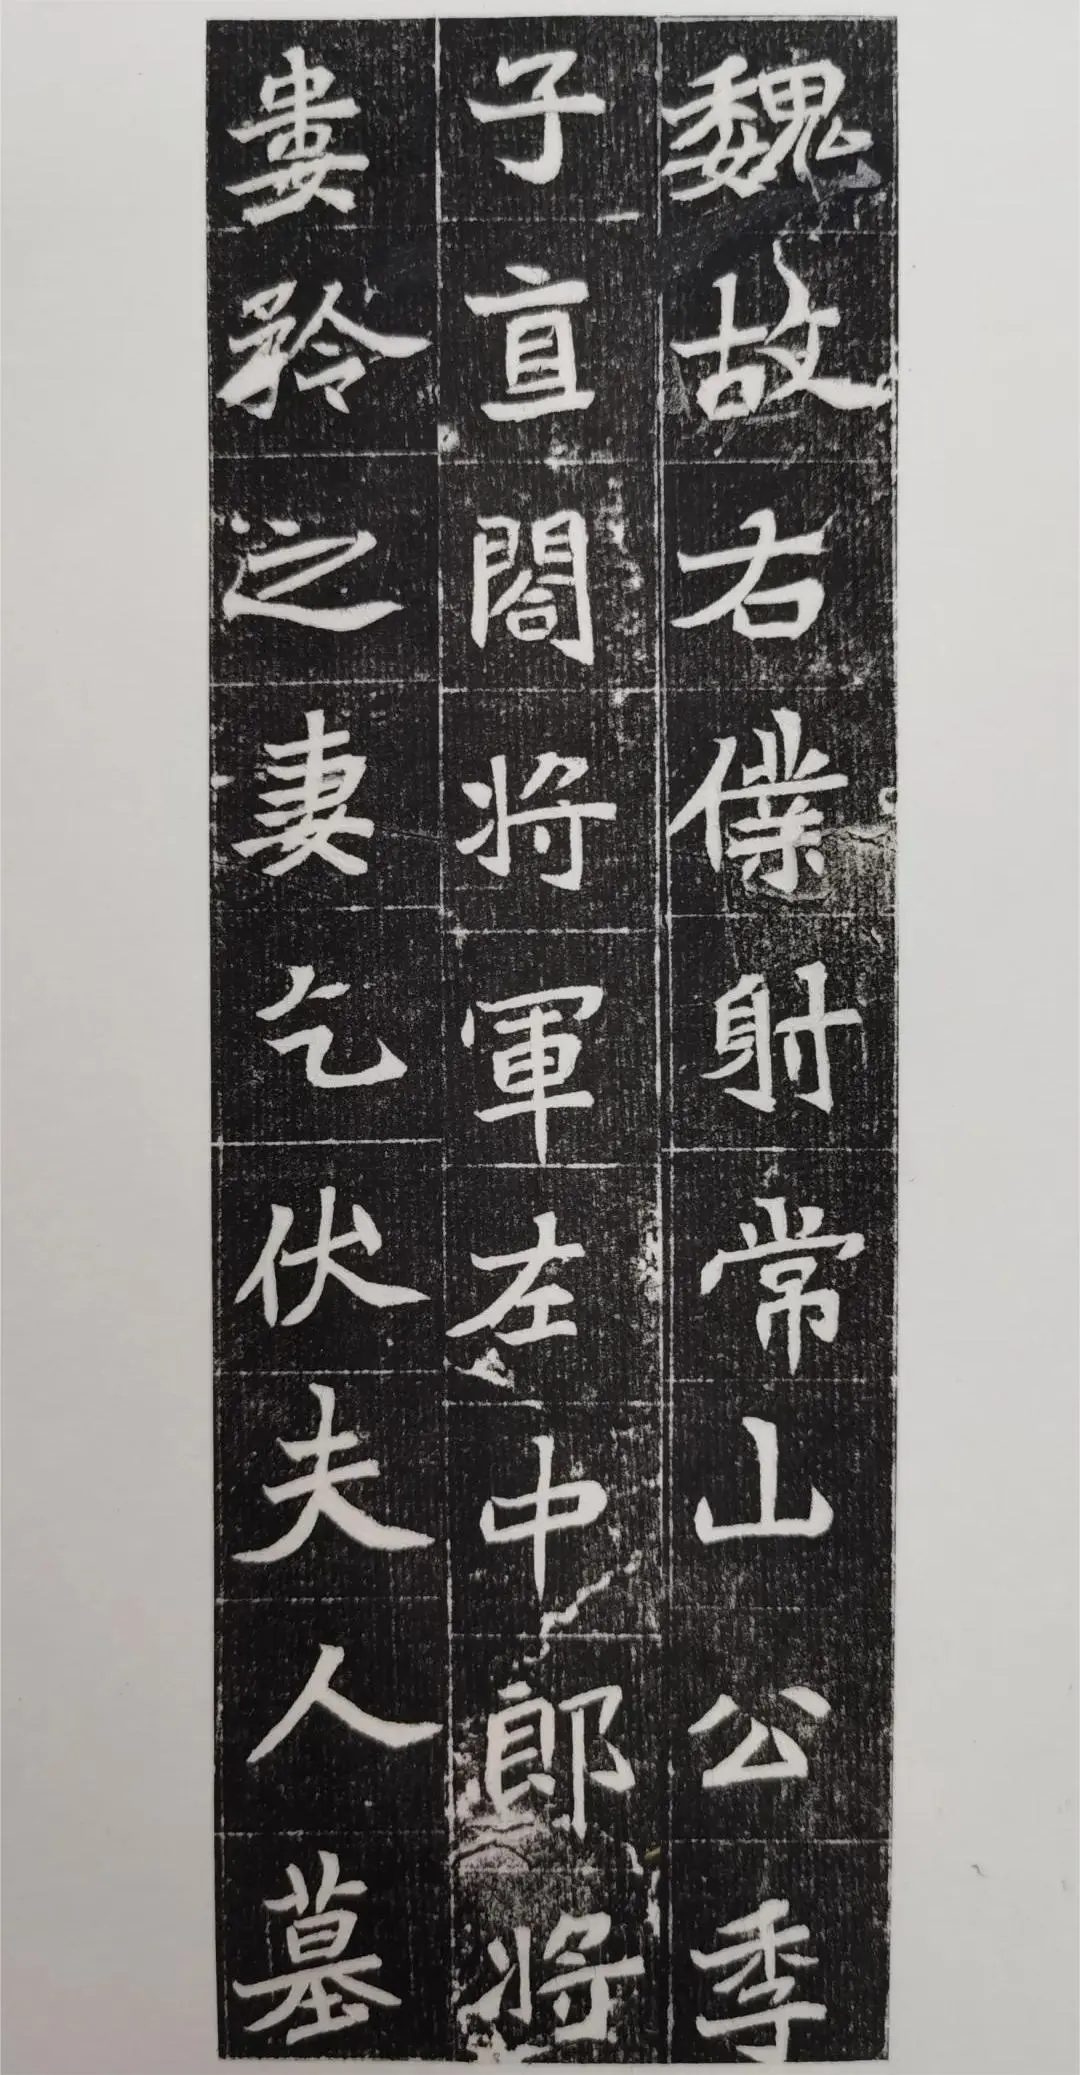 魏故右僕射常山公季
子直閤将軍左中郎将
婁矜之妻乞伏夫人墓